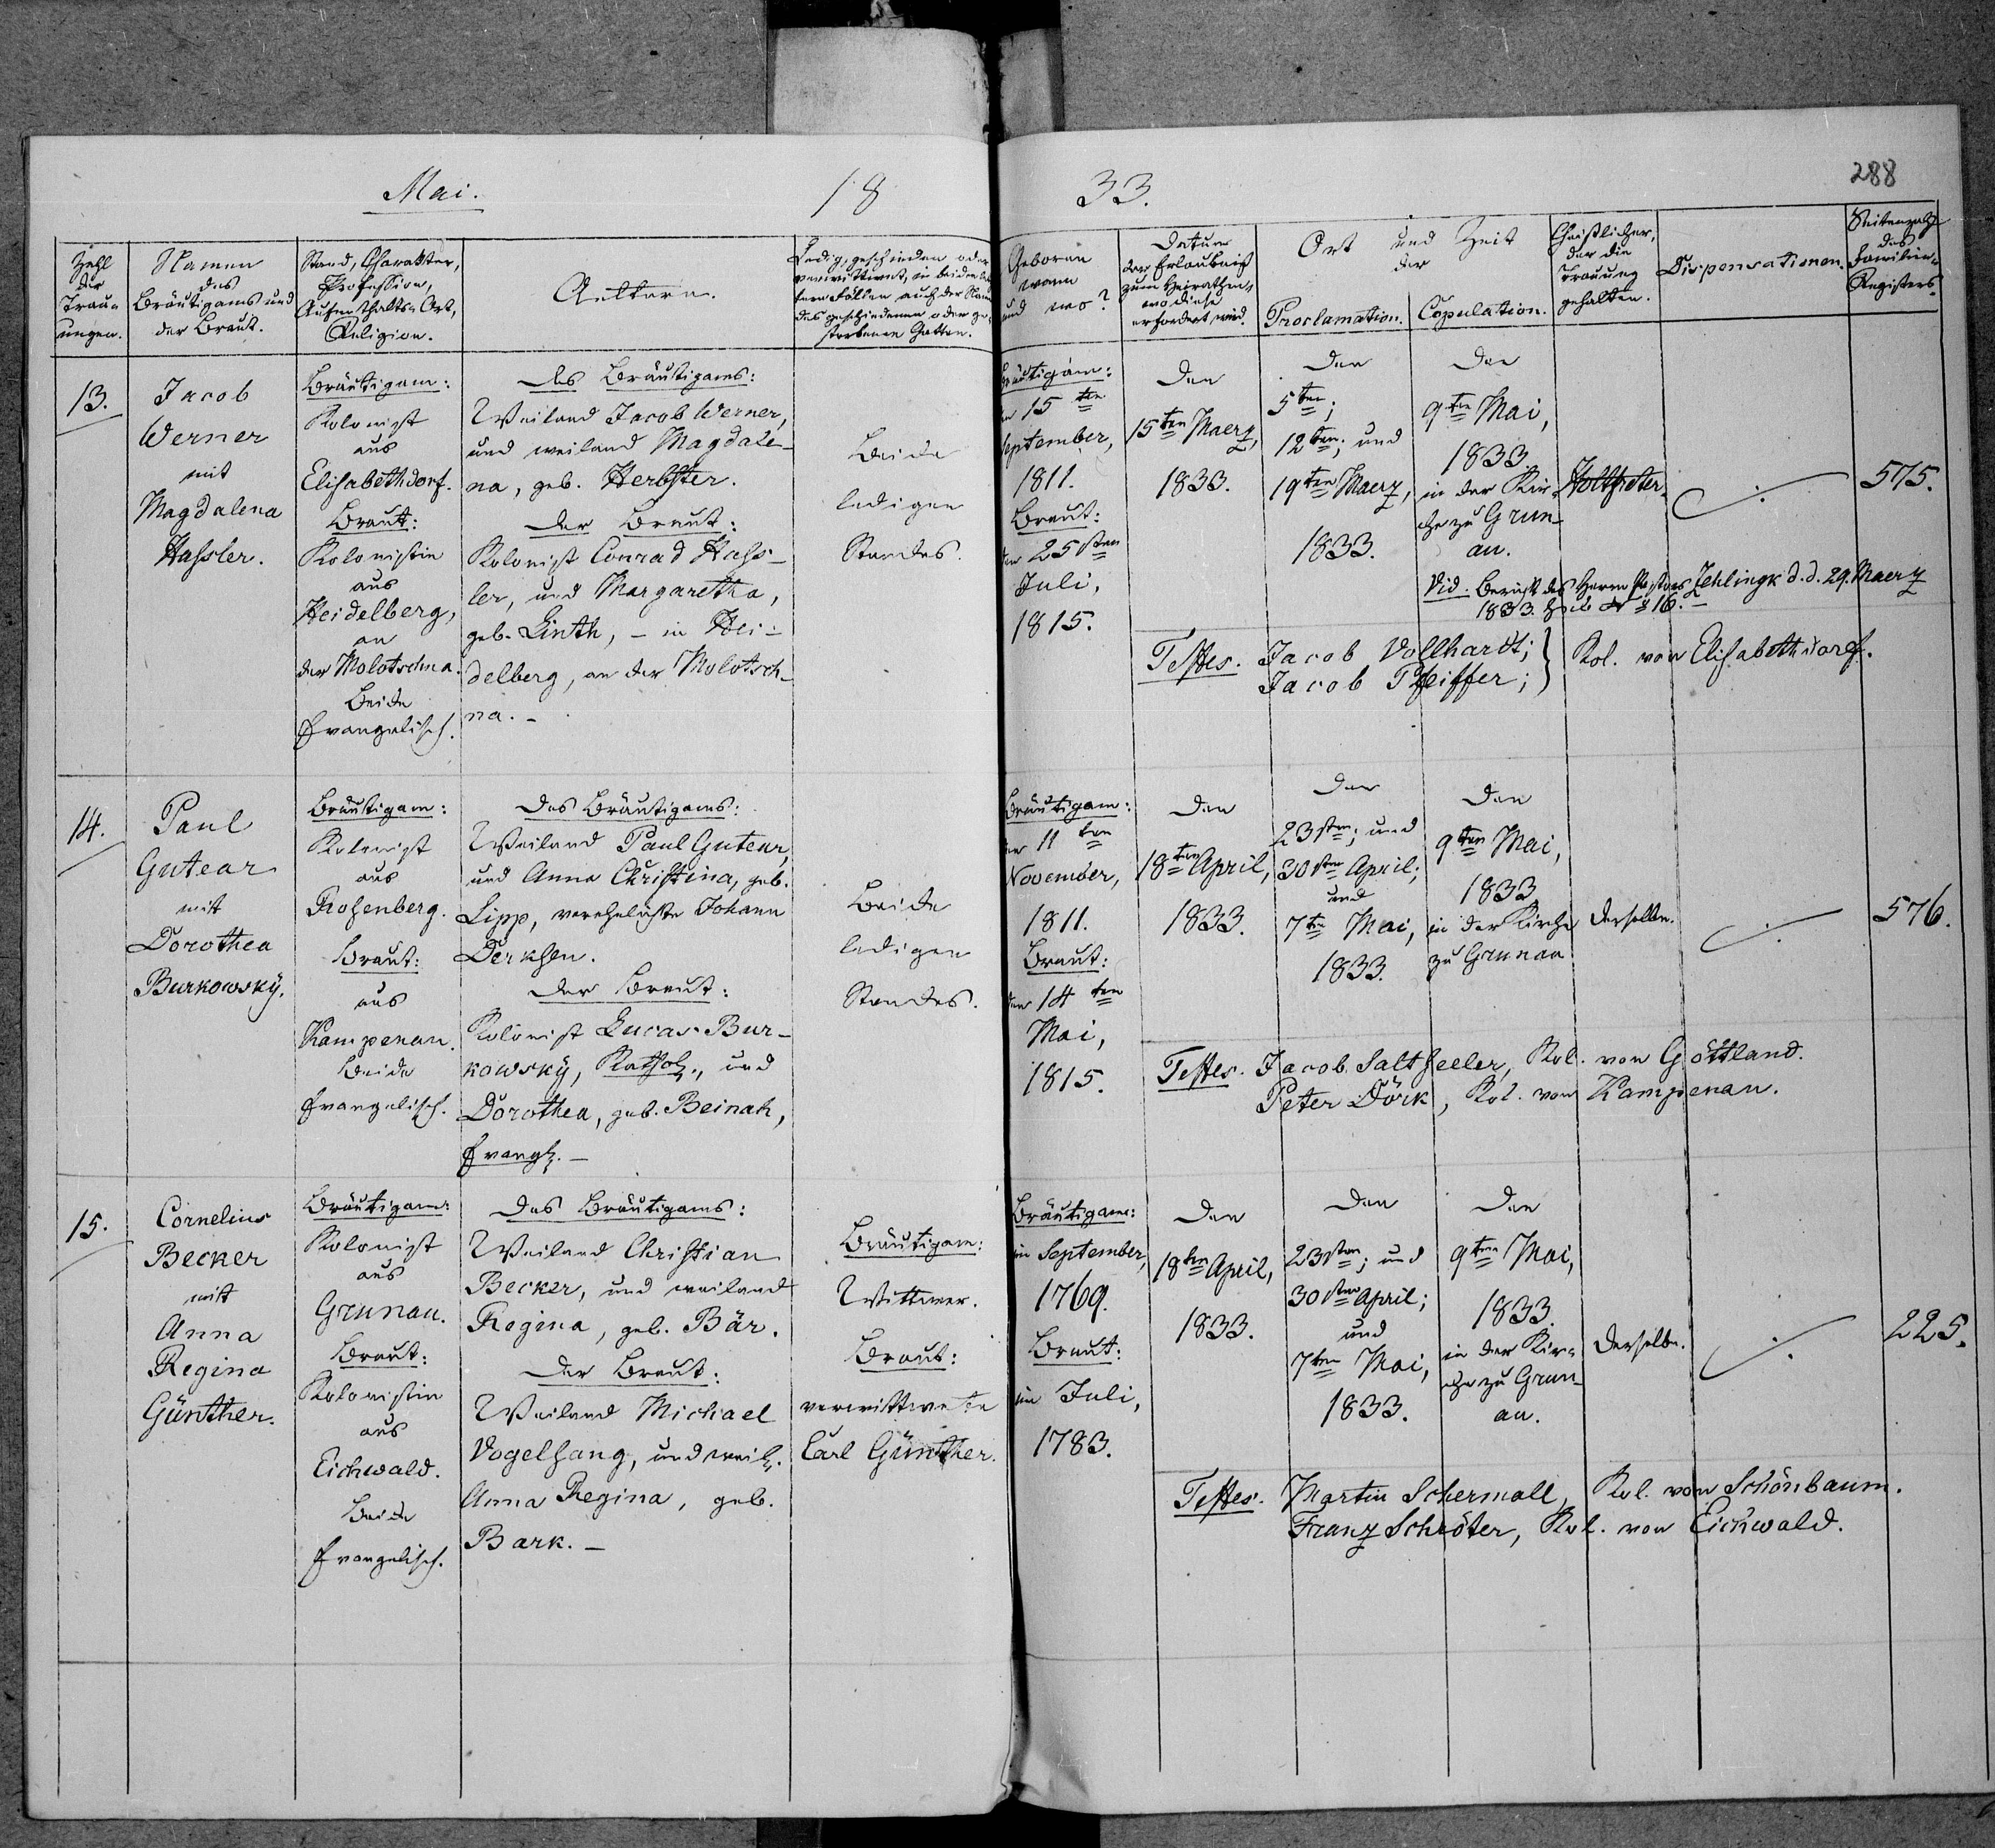 288
Mai. 18 33.
Zahl
der
Trau-
ungen.
Namen
des
Bräutigams und
der Braut.
Stand, Charakter,
Profession,
Aufenthalts-Ort,
Religion.
Aeltern.
Ledig, geschieden oder
verwittwet, in beiden
tern Fällen auch der Name
des geschiedenen oder ge-
storbenen Gatten.
Geboren
wann
und wo?
Datum
der Erlaubniß
zum Heirathen,
wo diese
erfordert wird.
Ort und Zeit
der
Proclamation.
Copulation.
Geistlicher,
der die
Trauung
gehalten.
Dispensationen.
Seitenzahl
des
Familien-
Registers.
13.
Jacob
Werner
mit
Magdalena
Hassler.
Bräutigam:
Kolonist
aus
Elisabethdorf.
Braut:
Kolonistin
aus
Heidelberg,
an
der Molotschna.
Beide
Evangelisch.
Des Bräutigams:
Weiland Jacob Werner,
und weiland Magdale-
na, geb. Herbster.
Der Braut:
Kolonist Conrad Hass-
ler, und Margaretha,
geb. Linth, – in Hei-
delberg, an der Molotsch-
na. –
Beide
ledigen
Standes.
Bräutigam:
15ten
September,
1811.
Braut:
25sten
Juli,
1815.
Den
15ten Maerz,
1833.
Den
5ten;
12ten; und
19ten Maerz,
1833.
Den
9ten Mai,
1833
in der Kir-
che zu Grun-
au.
Holtfreter.
575.
Vid. Bericht des Herrn Pastors Zehlingk d. d. 29. Maerz
1833. № 16. –
Testes. Jacob Vollhardt;
Jacob Pfeiffer; } Kol. von Elisabethdorf.
14.
Paul
Gutear
mit
Dorothea
Burkowsky.
Bräutigam:
Kolonist
aus
Rosenberg.
Braut:
aus
Kampenau.
Beide
Evangelisch.
Des Bräutigams:
Weiland Paul Gutear,
und Anna Christina, geb.
Lipp, verehelichte Johann
Derksen.
Der Braut:
Kolonist Lucas Bur-
kowsky, Kathol., und
Dorothea, geb. Beinak,
Evangl. –
Beide
ledigen
Standes.
Bräutigam:
11ten
November,
1811.
Braut:
den 14ten
Mai,
1815.
Den
18ten April,
1833.
Den
23sten; und
30sten April;
und
7ten Mai,
1833.
Den
9ten Mai,
1833
in der Kirche
zu Grunau
Derselbe.
576.
Testes. Jacob Saltzseller, Kol. von Göttland.
Peter Dörk, Kol. von Kampenau.
15.
Cornelius
Becker
mit
Anna
Regina
Günther.
Bräutigam:
Kolonist
aus
Grunau.
Braut:
Kolonistin
aus
Eichwald.
Beide
Evangelisch.
Des Bräutigams:
Weiland Christian
Becker, und weiland
Regina, geb. Bär.
Der Braut:
Weiland Michael
Vogelsang, und weil.
Anna Regina, geb.
Bark. –
Bräutigam:
Wittwer.
Braut:
verwittwete
Carl Günther.
Bräutigam:
im September,
1769.
Braut:
im Juli,
1783.
Den
18ten April,
1833.
Den
23sten; und
30sten April;
und
7ten Mai,
1833.
Den
9ten Mai,
1833.
in der Kir-
che zu Grun-
au.
Derselbe.
225.
Testes. Martin Schermall, Kol. von Schönbaum.
Franz Schröter, Kol. von Eichwald.